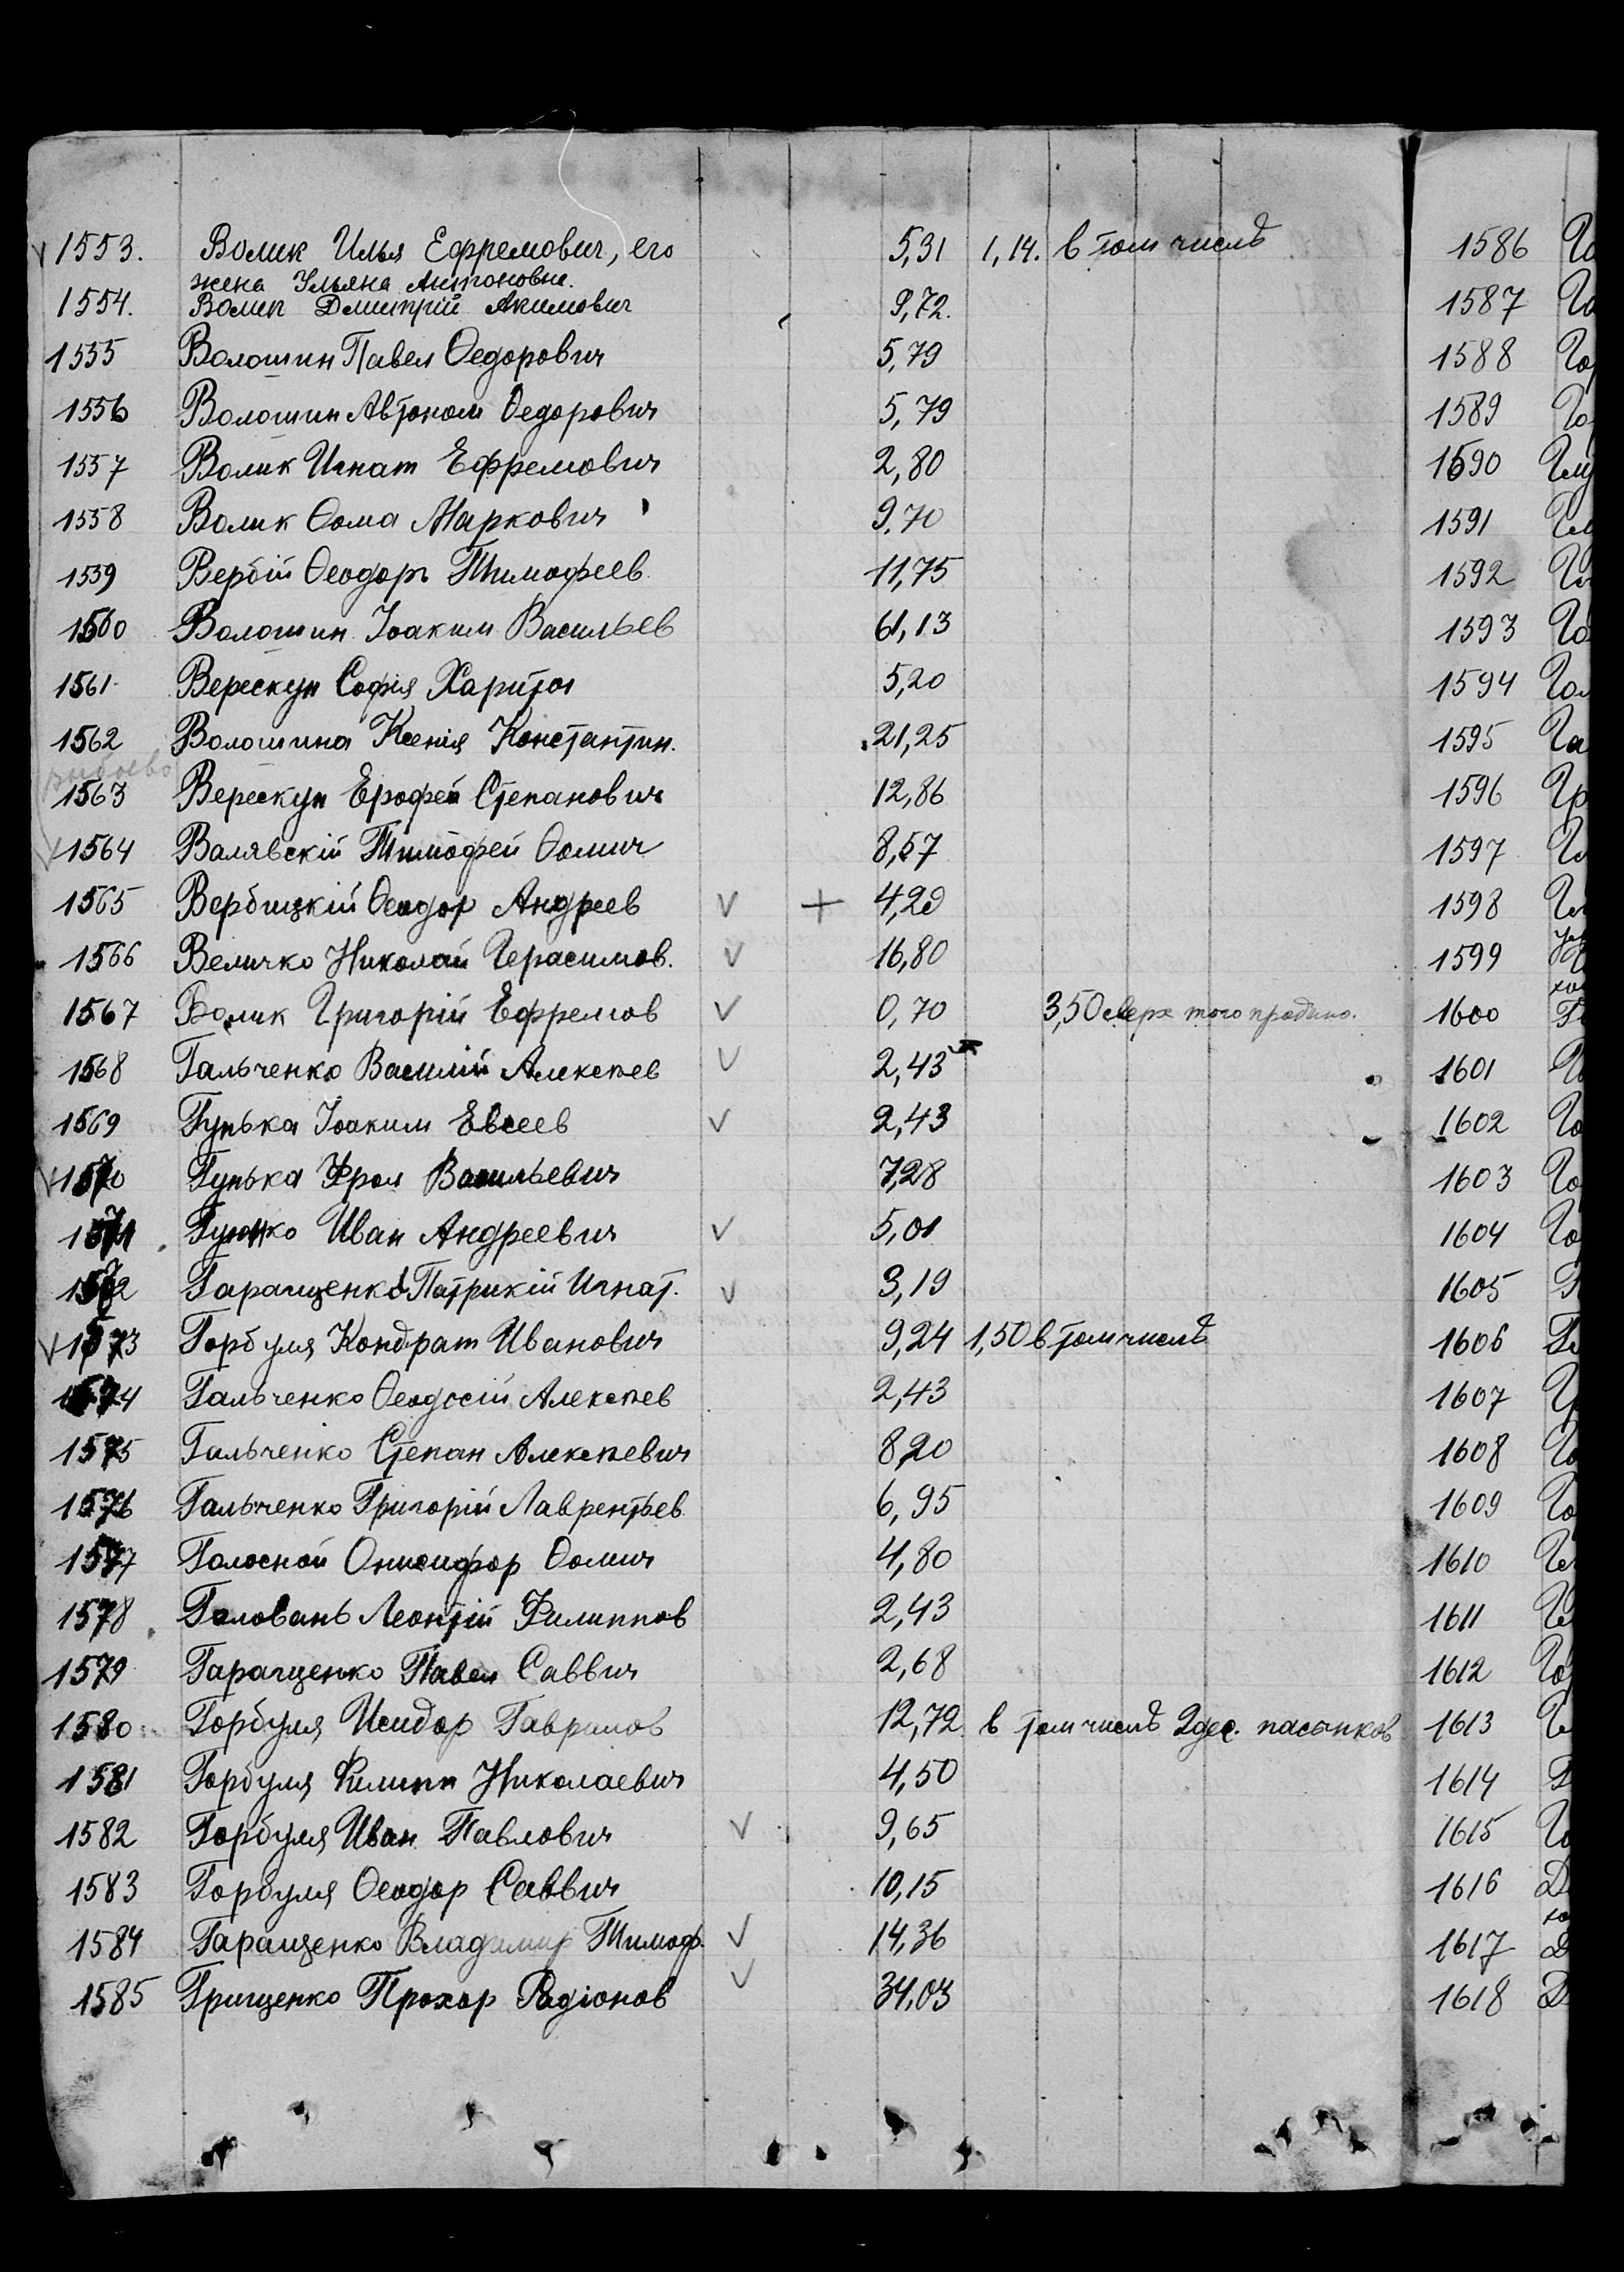 1553. Волик Илья Ефремович, его 5,31 1,14. в том числѣ
жена Ульяна Антоновна.
1554. Волик Дмитрій Акимович 9,72.
1555 Волошин Павел Ѳедорович 5,79
1556 Волошин Автоном Ѳедорович 5,79
1557 Волик Игнат Ефремович 2,80
1558 Волик Ѳома Маркович 9,70
1559 Вербій Ѳеодоръ Тимофеев 11,75
1560 Волошин Іоаким Васильев 61,13
1561 Верескун Софія Харитон 5,20
1562 Волошина Ксенія Константин. 21,25
1563 Верескун Ерофей Степанович 12,86
V 1564 Валявскій Тимофей Ѳомич 8,57
1565 Вербицкій Ѳеодор Андреев V + 4,20
1566 Величко Николай Герасимов. V 16,80
1567 Волик Григорій Ефремов V 0,70 3,50 сверх того продано.
1568 Гальченко Василій Алексѣев V 2,43
1569 Гунька Іоаким Евсеев V 2,43
V 1570 Гунька Фрол Васильевич 7,28
1571 Гунько Иван Андреевич V 5,01
1572 Гаращенко Патрикій Игнат. V 3,19
V 1573 Горбуля Кондрат Иванович 9,24 1,50 в том числѣ
1574 Гальченко Ѳеодосій Алексѣев 2,43
1575 Гальченко Степан Алексѣевич 8,20
1576 Гальченко Григорій Лаврентьев 6,95
1577 Голосной Онисифор Ѳомич 4,80
1578 Головань Леонтій Филиппов 2,43
1579 Гаращенко Павел Саввич 2,68
1580 Горбуля Исидор Гаврилов 12,72 в том числѣ 2 дес. пасынков
1581 Горбуля Филипп Николаевич 4,50
1582 Горбуля Иван Павлович V 9,65
1583 Горбуля Ѳеодор Саввич 10,15
1584 Гаращенко Владимир Тимоф. V 14,36
1585 Грищенко Прохор Радіонов V 34,03
1586
1587
1588
1589
1590
1591
1592
1593
1594
1595
1596
1597
1598
1599
1600
1601
1602
1603
1604
1605
1606
1607
1608
1609
1610
1611
1612
1613
1614
1615
1616
1617
1618